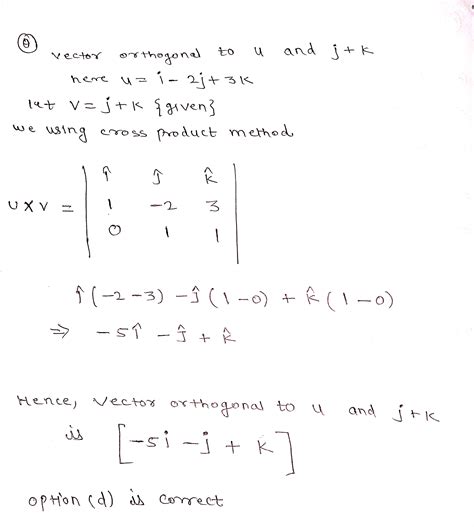 Ⓠ vector orthogonal to u and j+k
here u = i - 2j + 3k
let v = j+k {given}
we using cross product method
î ĵ k̂
U×V = 1 -2 3
0 1 1
î(-2-3) - ĵ(1-0) + k̂(1-0)
⇒ -5î - ĵ + k̂
Hence, vector orthogonal to u and j+k
is [-5i - j + k]
option (d) is correct